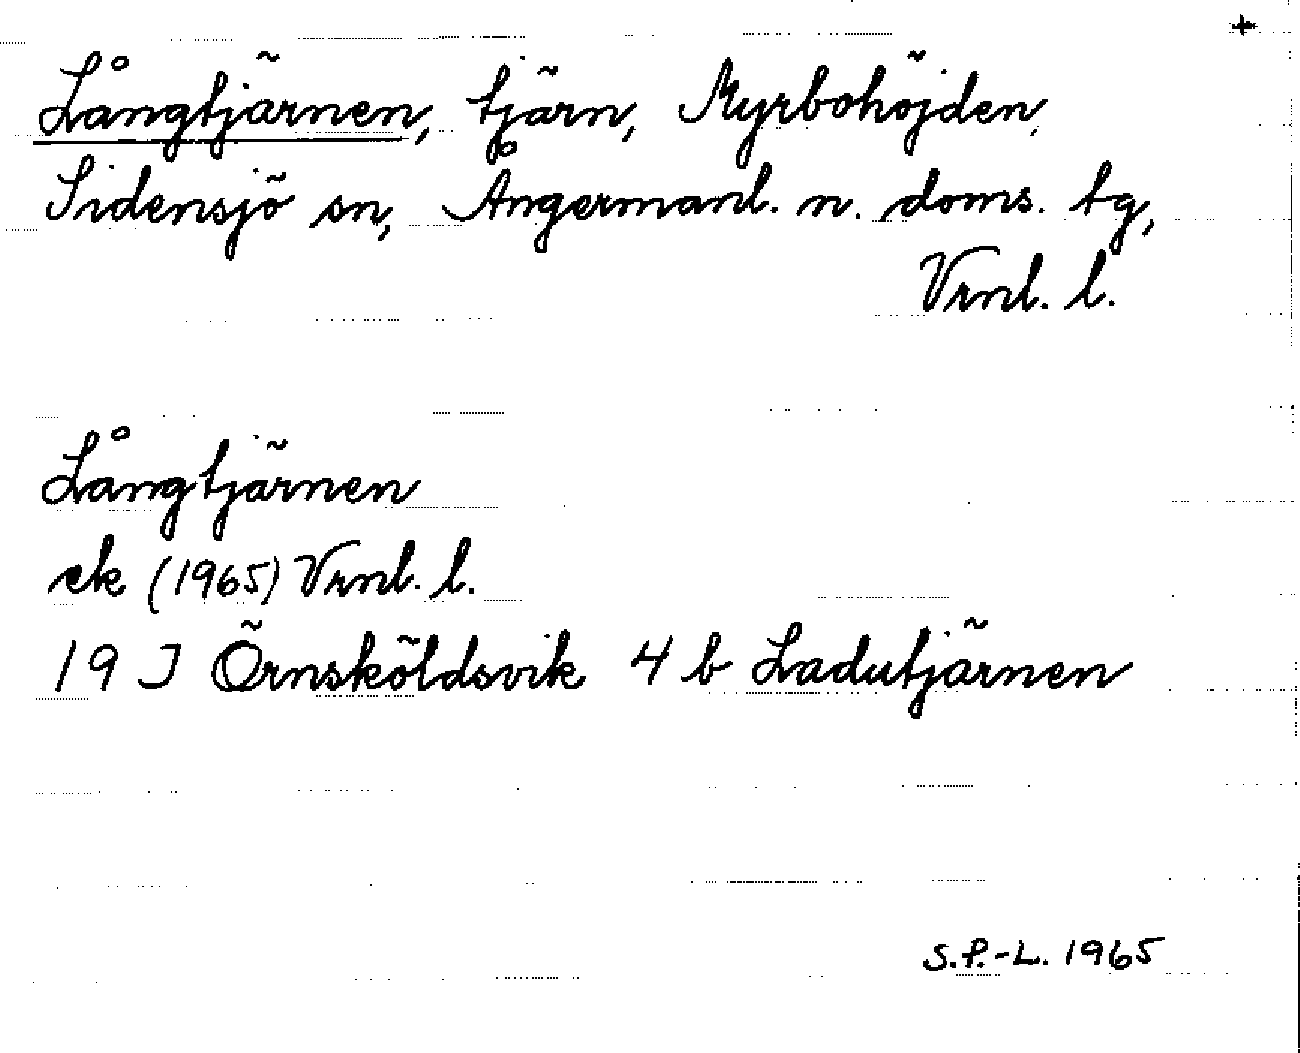 +
Långtjärnen, tjärn, Myrbohöjden,
Sidensjö sn, Ångermanl. n. doms. tg,
Vrnl. l.
Långtjärnen
ek (1965) Vrnl. l.
19 J Örnsköldsvik 4 b Ladutjärnen
S.P.-L. 1965